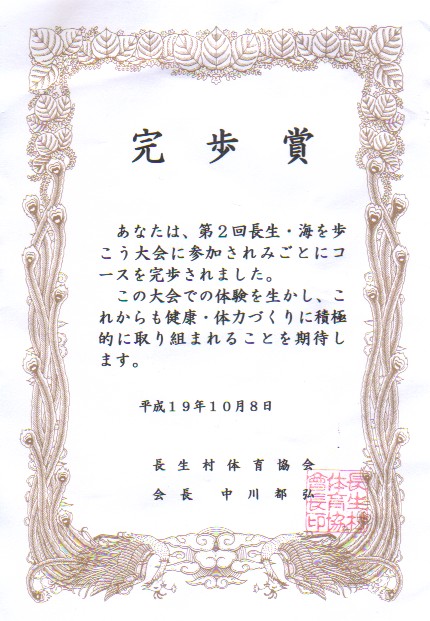 完歩賞
あなたは、第2回長生・海を歩
こう大会に参加されみごとにコ
ースを完歩されました。
この大会での体験を生かし、こ
れからも健康・体力づくりに積極
的に取り組まれることを期待し
ます。
平成19年10月8日
長生村体育協会
会長 中川都弘
長生村
体育協
會長印